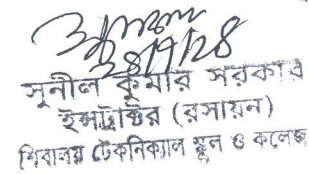 ২৪/৭/২৪
সুনীল কুমার সরকার
ইন্সট্রাক্টর (রসায়ন)
শিবালয় টেকনিক্যাল স্কুল ও কলেজ